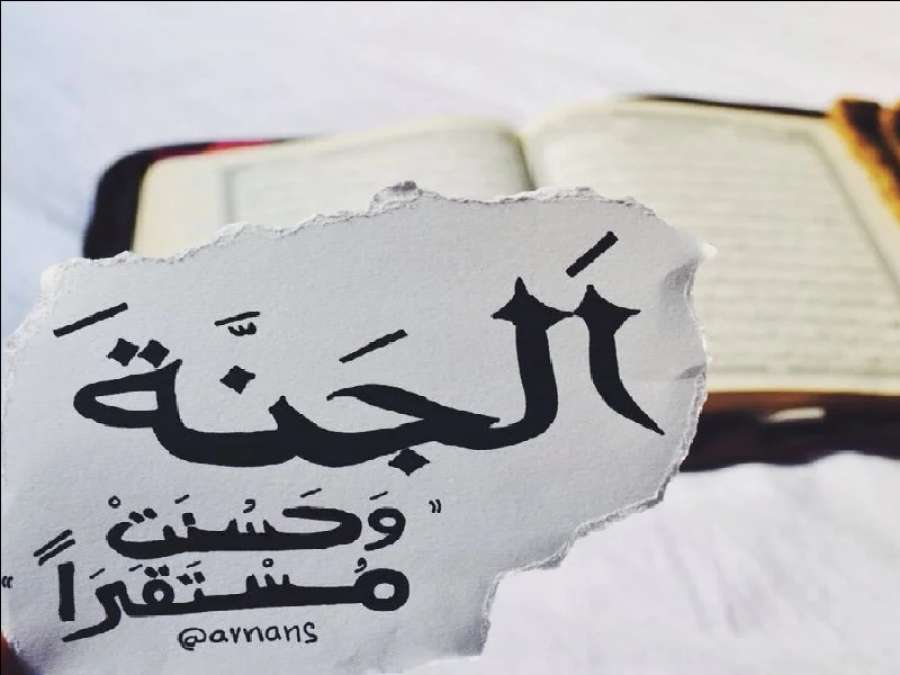 اَلجَنَّةَ
" وَحَسُنَتْ
مُسْتَقَرَاً "
@avnans